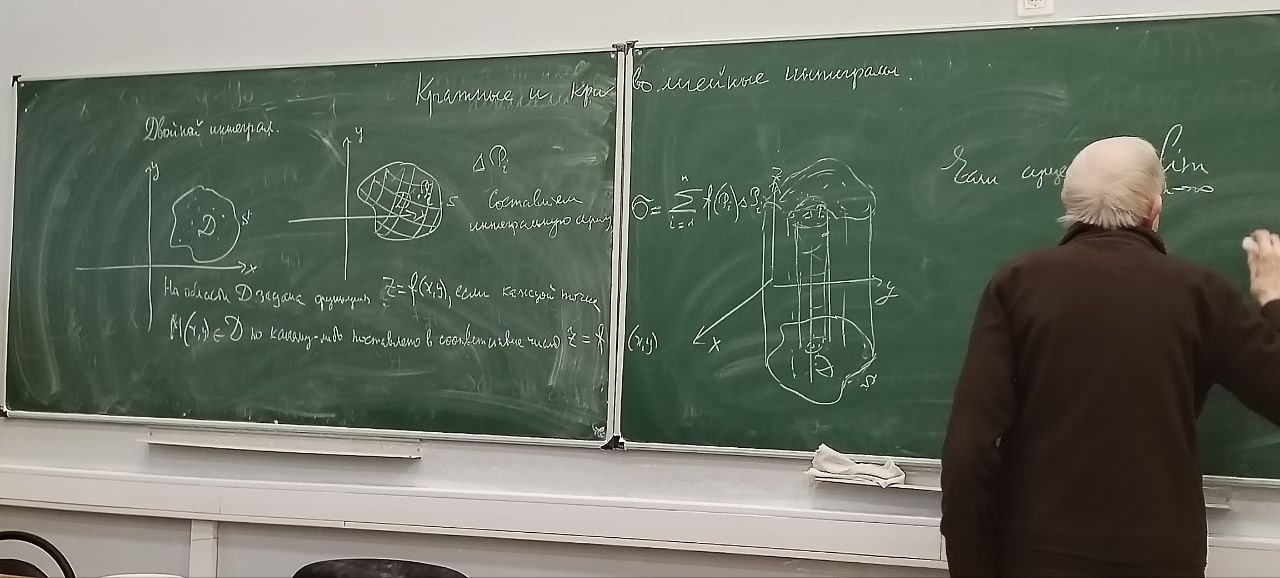 Кратные и криволинейные интегралы.
Двойной интеграл.
y
D
S
x
y
Pi
S
Δ Pi
Составляем
интегральную сумму
На области D задана функция z = f(x,y), если каждой точке
M(x,y) ∈ D по какому-либо поставлено в соответствие число z = f(x,y)
σ = Σ f(Pi) Δ Pi
n
i=1
z
y
x
D
S
Если lim
n→∞